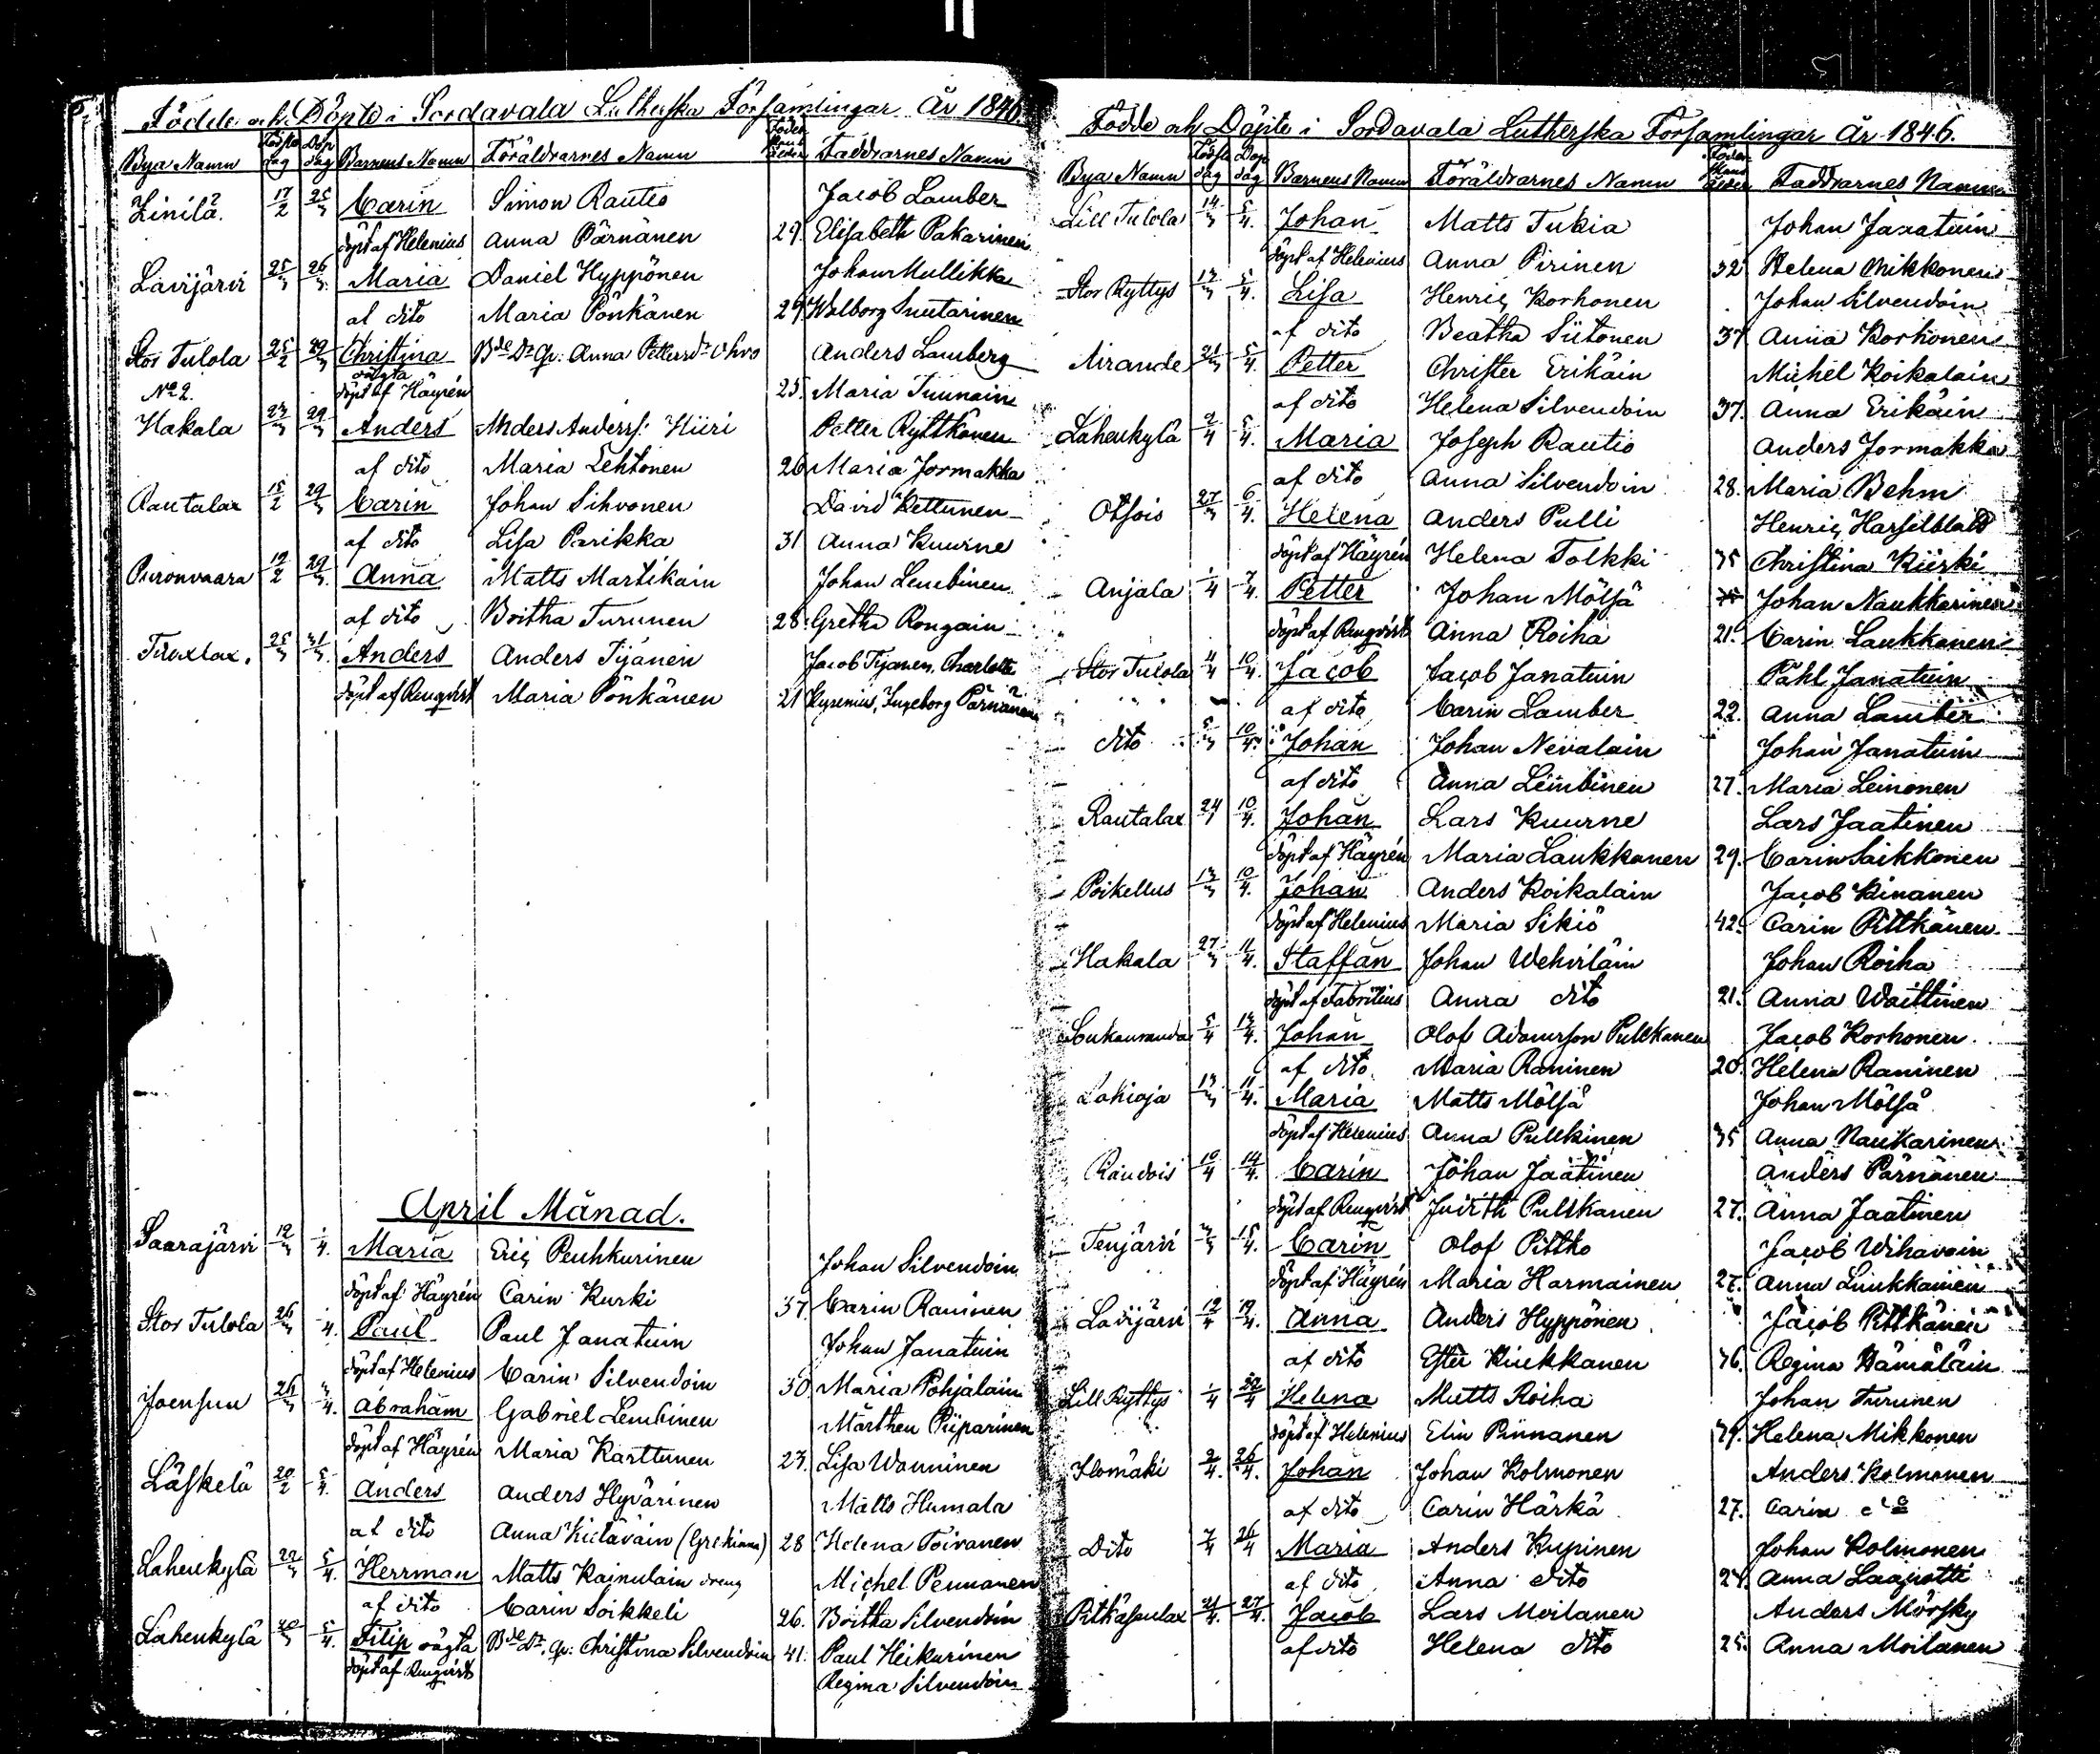 Födde och Döpte i Sordavala Lutherska Församlingar År 1846.
Bya Namn Födsl dag Döp dag Barnens Namn Föräldrarnes Namn Moders ålder Faddrarnes Namn
Linilä. 17/2 25/3 Carin Simon Rautio Jacob Lamber
döpt af Helenius Anna Pärnänen 29. Elisabeth Pakarinen
Lavijärvi 25/3 26/3 Maria Daniel Hyppönen Johan Mullikka
af dito Maria Pönkänen 29. Walborg Suutarinen
Stor Tulola 25/2 29/3 Christina Bde Dr Qv. Anna Pettersdr Ohvo Anders Lamberg
No 2. oägta
döpt af Häyrén 25. Maria Tuunain
Hakala 23/3 29/3 Anders Anders Anderss: Hiiri Petter Ryttkönen
af dito Maria Lehtonen 26 Maria Jormakka
Rautalax 15/2 29/3 Carin Johan Sihvonen David Kettunen
af dito Lisa Parikka 31 Anna Kuurne
Pieronvaara 12/2 29/3 Anna Matts Martikain Johan Lembinen
af dito Boitha Turunen 28. Gretha Rongain
Tiraxlax. 25/3 31/3 Anders Anders Tijänen Jacob Tijanen, Charlotta
döpt af Renqvist Maria Pönkänen 21 Kyrenius, Ingeborg Pärnänen
April Månad.
Saarajärvi 12/3 1/4. Maria Eric Peuhkurinen Johan Silvendoin
döpt af Häyrén Carin Kurki 37. Carin Raninen
Stor Tulola 26/3 1/4. Paul Paul Janatuin Johan Janatuin
döpt af Helenius Carin Silvendoin 30 Maria Pohjalain
Joensuu 26/3 3/4. Abraham Gabriel Lembinen Mårthen Piiparinen
döpt af Häyrén Maria Karttunen 23. Lisa Wanninen
Läskelä 20/2 5/4. Anders Anders Hyvärinen Matts Humala
af dito Anna Kiiläväin (Grekinna) 28 Helena Toivanen
Lahenkylä 22/3 5/4. Herrman Matts Kainulain dreng Michel Pennanen
af dito Carin Soikkeli 26. Boitha Silvendoin
Lahenkylä 20/3 5/4. Filip oägta Bde Dr. Qv: Christina Silvendoin 41. Paul Heikurinen
döpt af Renqvist Regina Silvendoin
Födde och Döpte i Sordavala Lutherska Församlingar År 1846.
Bya Namn Födsl dag Döp dag Barnens Namn Föräldrarnes Namn Moders ålder Faddrarnes Namn
Lill Tulola 14/3 5/4. Johan Matts Tukia Johan Janatuin
döpt af Helenius Anna Pirinen 32 Helena Mikkonen
Stor Ryttys 13/3 5/4. Lisa Henric Korhonen Johan Silvendoin
af dito Beatha Siitonen 37 Anna Korhonen
Mirande 21/3 5/4. Petter Christer Erikäin Michel Koikalain
af dito Helena Silvendoin 37. Anna Erikäin
Lahenkylä 2/4 5/4. Maria Joseph Rautio Anders Jormakka
af dito Anna Silvendoin 28. Maria Behm
Otsois 27/3 6/4. Helena Anders Pulli Henric Harselblad
döpt af Häyrén Helena Tolkki 35 Christina Kiiski
Anjala 1/4 7/4. Petter Johan Mölsä Johan Naukkarinen
döpt af Renqvist Anna Roiha 21. Carin Laukkanen
Stor Tulola 4/4 10/4. Jacob Jacob Janatuin Påhl Janatuin
af dito Carin Lamber 22. Anna Lamber
dito 5/3 10/4. Johan Johan Nevalain Johan Janatuin
af dito Anna Lembinen 27. Maria Leinonen
Rautalax 24/1 10/4. Johan Lars Kuurne Lars Jaatinen
döpt af Häyrén Maria Laukkanen 29. Carin Saikkonen
Poikellus 13/3 10/4. Johan Anders Koikalain Jacob Kinanen
döpt af Helenius Maria Sikiö 42. Carin Pittkänen
Hakala 27/3 11/4. Staffan Johan Wehviläin Johan Roiha
döpt af Fabritius Anna dito 21. Anna Waittinen
5/4 13/4. Johan Olof Adamsson Pulkkanen Jacob Korhonen
af dito. Maria Raninen 20. Helena Raninen
Lahioja 13/3 11/4. Maria Matts Mölsä Johan Mölsä
döpt af Helenius Anna Pulkkinen 35 Anna Naukarinen
Raudois 10/4 14/4. Carin Johan Jaatinen Anders Pärnänen
döpt af Renqvist Judith Pulkkanen 27. Anna Jaatinen
Tenjärvi 3/3 15/4. Carin Olof Pittko Jacob Wihavain
döpt af Häyrén Maria Harmainen 27. Anna Liukkainen
Lavijärvi 12/4 19/4. Anna Anders Hyppönen Jacob Pittkänen
af dito Ester Kiukkanen 36. Regina Hämäläin
Lill Ryttys 1/4 22/4 Helena Matts Roiha Johan Turunen
döpt af Helenius Elin Pinnanen 39. Helena Mikkonen
Ilomäki 2/4. 26/4. Johan Johan Kolmonen Anders Kolmonen
af dito Carin Härkä 27. Carin do
Dito 7/4 26/4 Maria Anders Kupinen Johan Kolmonen
af dito Anna dito 24. Anna Laapotti
Pitkäsulax 21/4. 27/4. Jacob Lars Moilanen Anders Mörsky
af dito Helena dito 25. Anna Moilanen